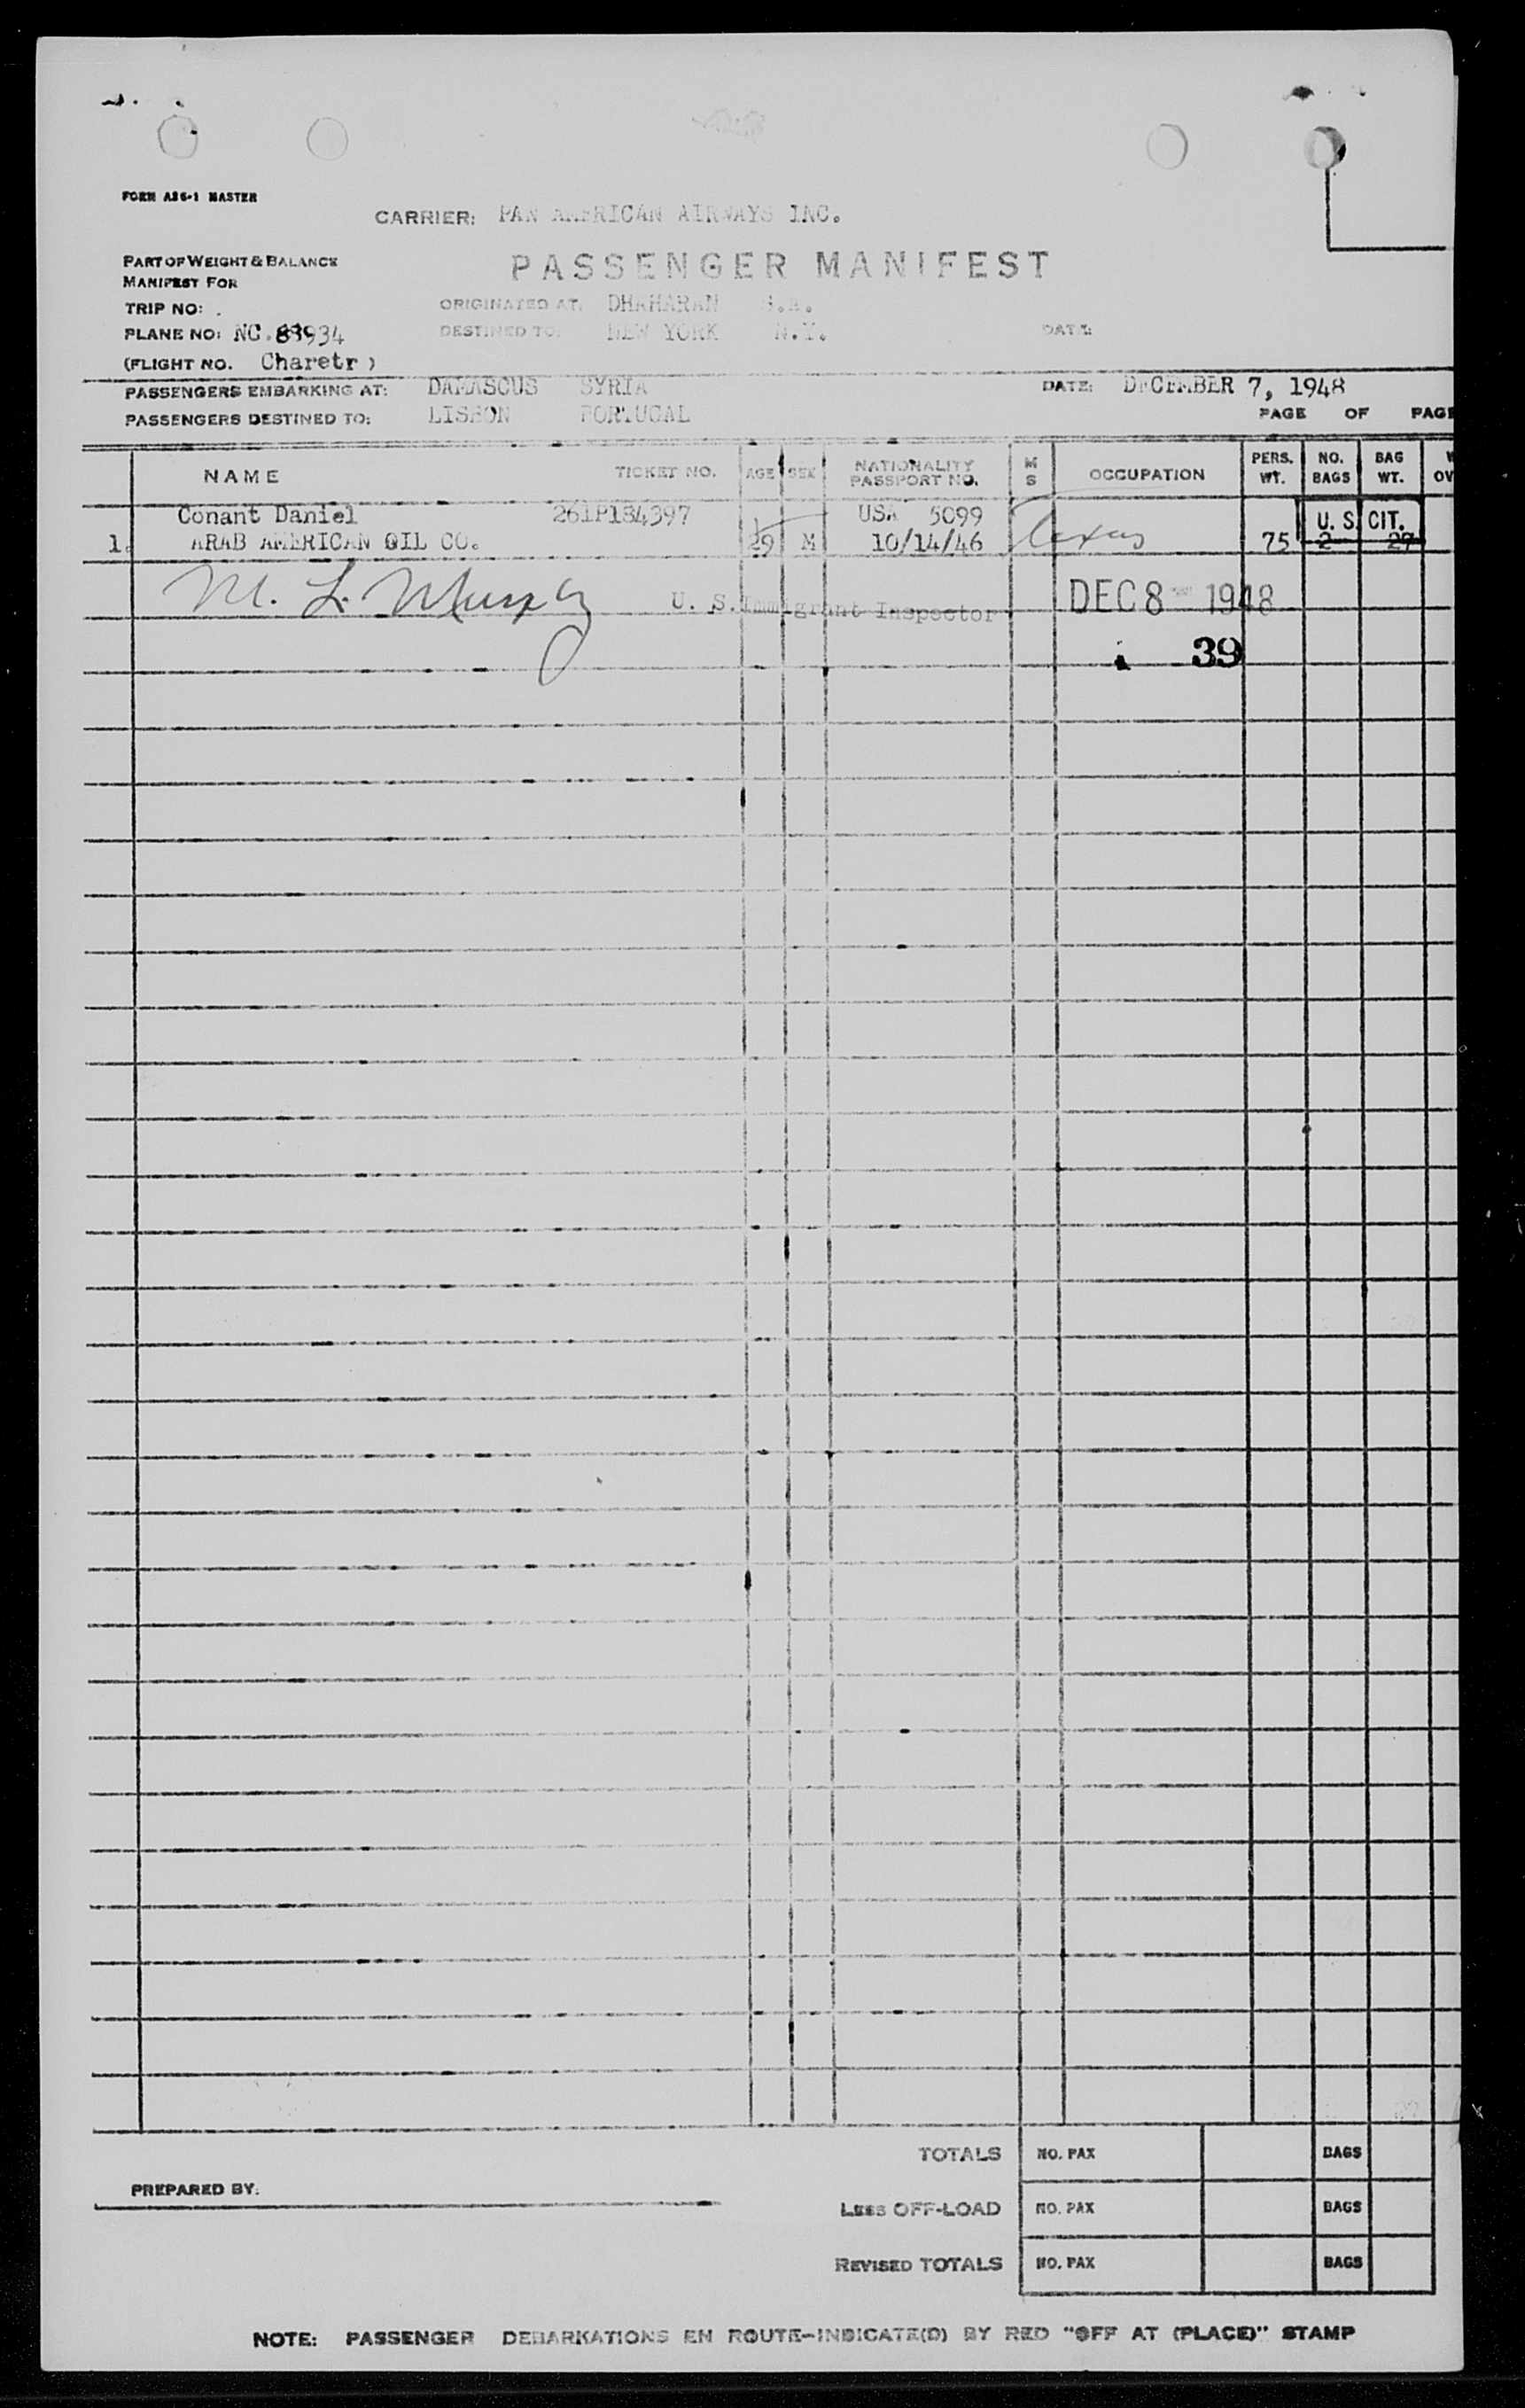 FORM A26-1 MASTER
CARRIER: PAN AMERICAN AIRWAYS INC.
PART OF WEIGHT & BALANCE
MANIFEST FOR
PASSENGER MANIFEST
TRIP NO: .
ORIGINATED AT: DHAHARAN S.A.
PLANE NO: NC.88934
DESTINED TO: NEW YORK N.Y.
DATE:
(FLIGHT NO. Charetr )
PASSENGERS EMBARKING AT: DAMASCUS SYRIA
DATE: DECEMBER 7, 1948
PASSENGERS DESTINED TO: LISBON PORTUGAL
PAGE OF PAGE
NAME TICKET NO. AGE SEX NATIONALITY PASSPORT NO. M S OCCUPATION PERS. WT. NO. BAGS BAG WT.
Conant Daniel 261P184397 USA 5099
U. S. CIT.
1. ARAB AMERICAN OIL CO. 29 M 10/14/46 Texas 75 2 27
M. L. Murphy U. S. Immigrant Inspector DEC 8 1948
39
TOTALS NO. PAX BAGS
PREPARED BY:
LESS OFF-LOAD NO. PAX BAGS
REVISED TOTALS NO. PAX BAGS
NOTE: PASSENGER DEBARKATIONS EN ROUTE-INDICATE(D) BY RED "OFF AT (PLACE)" STAMP